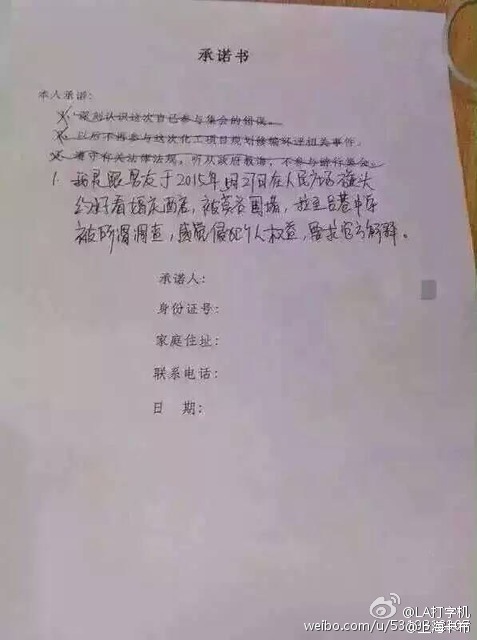 承诺书
本人承诺:
深刻认识这次自己参与集会的错误。
以后不再参与这次化工项目规划修编环评相关事件。
遵守有关法律法规，听从政府教诲，不参与游行集会。
1. 我是跟男友于2015年6月27日在人民广场碰头
约好看婚庆酒店，被莫名围堵，拉至吕巷中学
被所谓调查，感觉侵犯个人权益，要求官方解释。
承诺人:
身份证号:
家庭住址:
联系电话:
日 期:
@LA打字机
weibo.com/u/